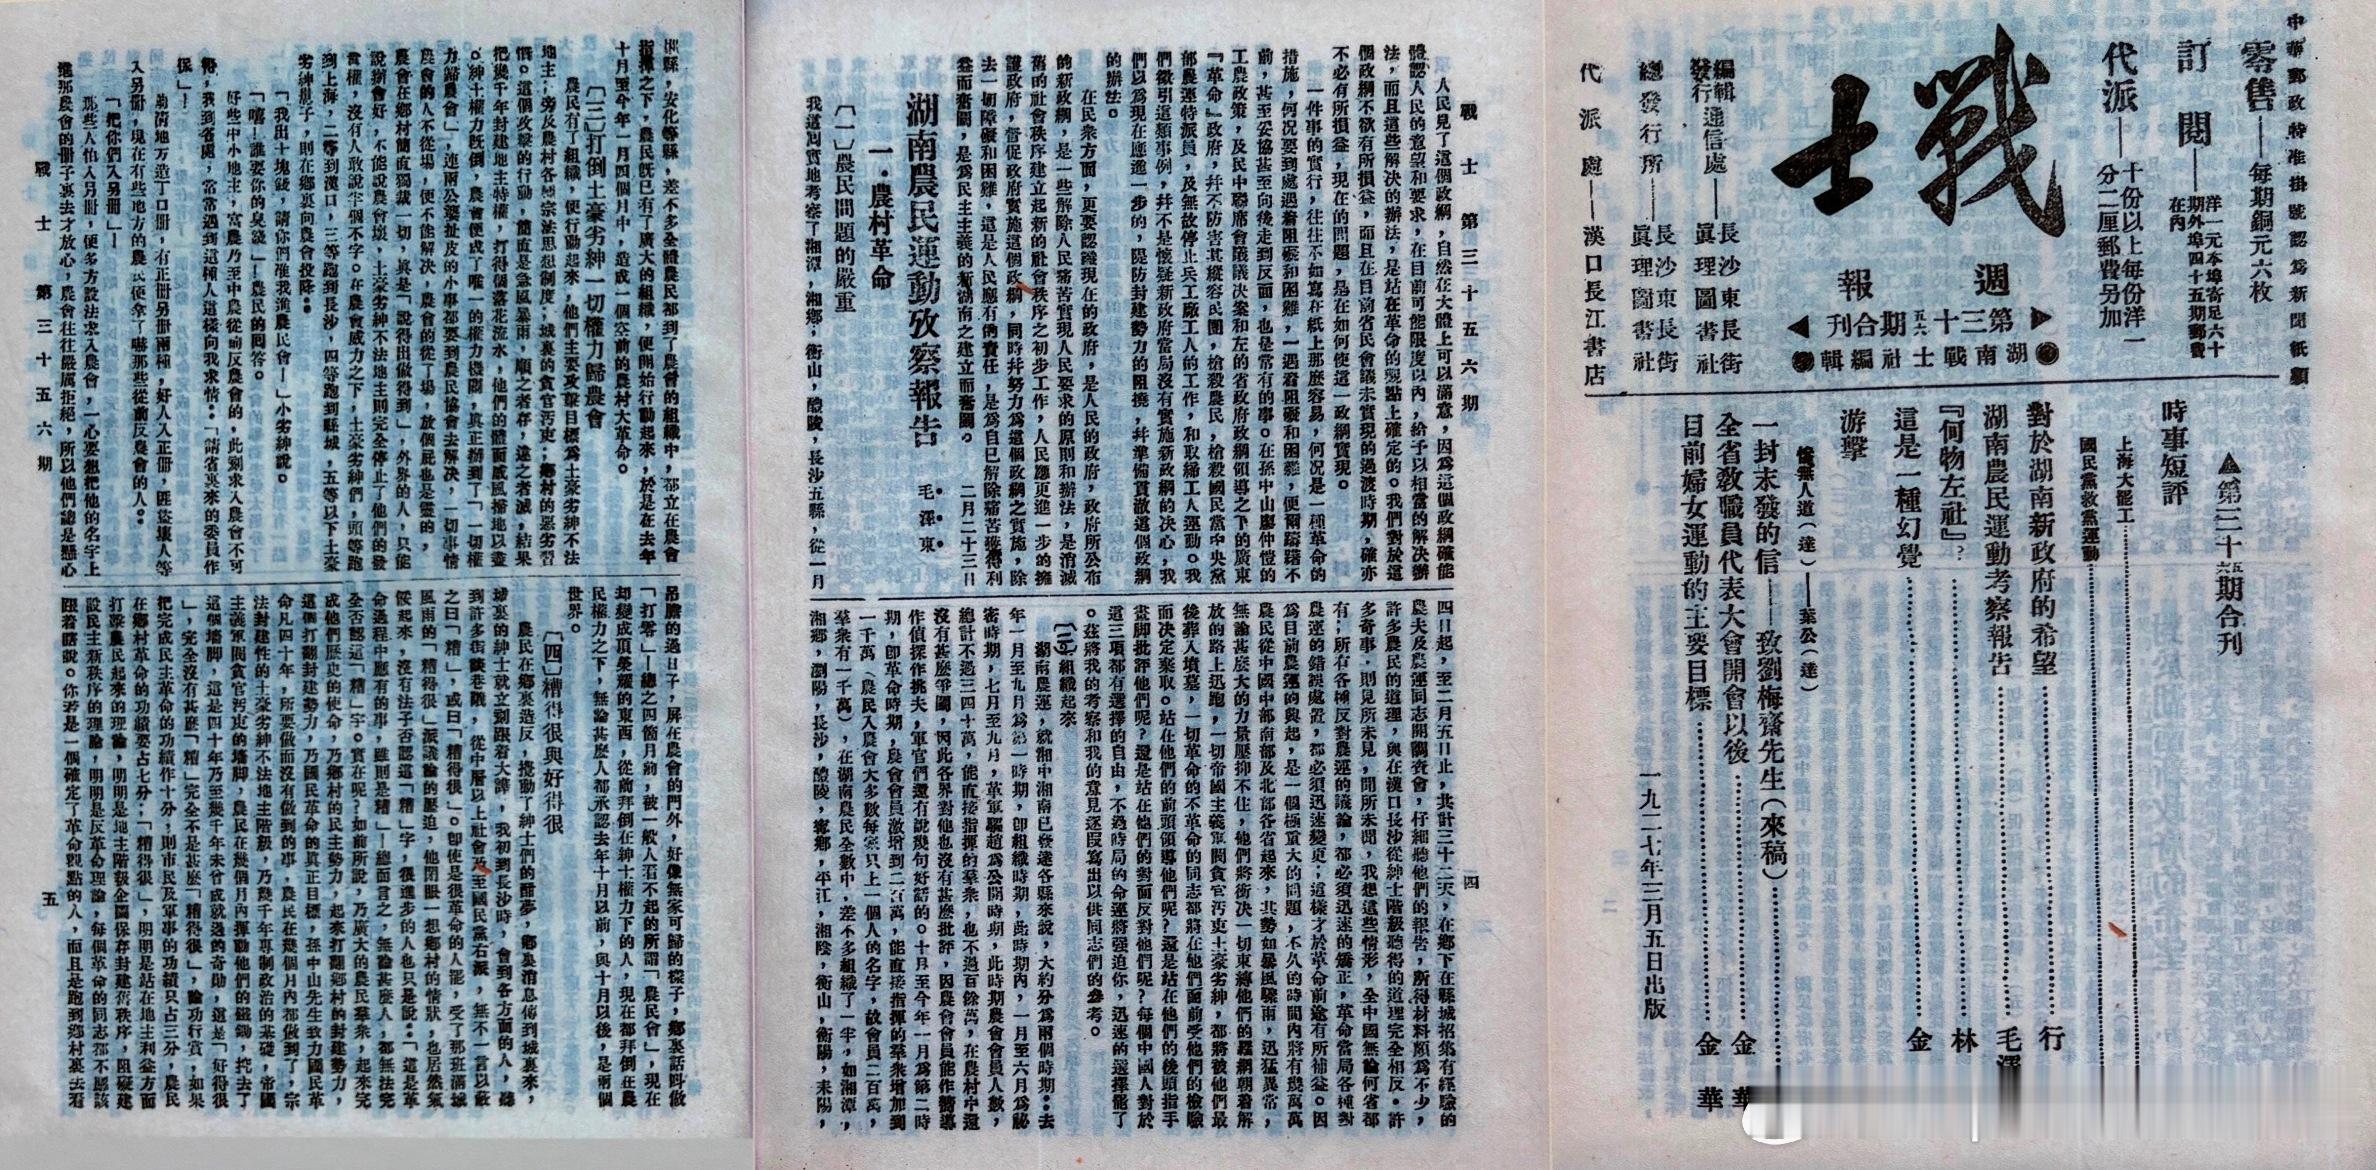 中華郵政特准掛號認為新聞紙類
零售——每期銅元六枚
訂閱——洋一元本埠寄足六十
期外埠四十五期郵費
在內
代派——十份以上每份洋一
分二厘郵費另加
戰士
週報
第三十五六期合刊
湖南戰士社編輯
編輯發行通信處——長沙東長街真理圖書社
總發行所——長沙東長街真理圖書社
代派處——漢口長江書店
▲第三十五六期合刊
時事短評
上海大罷工
國民黨救黨運動
對於湖南新政府的希望 行
湖南農民運動考察報告 毛澤
『何物左社』? 林
這是一種幻覺 金
游擊
慘無人道(達)——葉公(達)
一封未發的信——致劉梅齋先生(來稿)
全省教職員代表大會開會以後 金華
目前婦女運動的主要目標 金華
一九二七年三月五日出版
戰士 第三十五六期
四
人民見了這個政綱,自然在大體上可以滿意,因為這個政綱確能
體認人民的意望和要求,在目前可能限度以內,給予以相當的解決辦
法,而且這些解決的辦法,是站在革命的觀點上確定的。我們對於這
個政綱不欲有所損益,而且在目前省民會議未實現的過渡時期,確亦
不必有所損益,現在的問題,是在如何使這一政綱實現。
一件事的實行,往往不如寫在紙上那麼容易,何況是一種革命的
措施,何況要到處遇着阻礙和困難,一遇着阻礙和困難,便爾躊躇不
前,甚至妥協甚至向後走到反面,也是常有的事。在孫中山廖仲愷的
工農政策,及民中聯席會議議決案和左的省政府政綱領導之下的廣東
『革命』政府,幷不防害其縱容民團,槍殺農民,槍殺國民黨中央黨
部農運特派員,及無故停止兵工廠工人的工作,和取締工人運動。我
們徵引這類事例,幷不是懷疑新政府當局沒有實施新政綱的决心,我
們以為現在應進一步的,隄防封建勢力的阻撓,幷準備貫澈這個政綱
的辦法。
在民衆方面,更要認識現在的政府,是人民的政府,政府所公布
的新政綱,是一些解除人民痛苦實現人民要求的原則和辦法,是消滅
舊的社會秩序建立起新的社會秩序之初步工作,人民應更進一步的擁
護政府,督促政府實施這個政綱,同時幷努力為這個政綱之實施,除
去一切障礙和困難,這是人民應有的責任,是為自已解除痛苦獲得利
益而奮鬭,是為民主主義的新湖南之建立而奮鬭。 二月二十三日
湖南農民運動攷察報告 毛澤東
一.農村革命
〔一〕農民問題的嚴重
我這回實地考察了湘潭,湘鄉,衡山,醴陵,長沙五縣,從一月
四日起,至二月五日止,共計三十二天,在鄉下在縣城招集有經驗的
農夫及農運同志開關查會,仔細聽他們的報告,所得材料頗為不少,
許多農民的道理,與在漢口長沙從紳士階級聽得的道理完全相反。許
多奇事,則見所未見,聞所未聞,我想這些情形,全中國無論何省都
有;所有各種反對農運的議論,都必須迅速的矯正,革命當局各種對
農運的錯誤處置,都必須迅速變更;這樣才於革命前途有所補益。因
為目前農運的興起,是一個極重大的問題,不久的時間內將有幾萬萬
農民從中國中部南部及北部各省起來,其勢如暴風驟雨,迅猛異常,
無論甚麼大的力量壓抑不住,他們將衝决一切束縛他們的羅網朝着解
放的路上迅跑,一切帝國主義軍閥貪官汚吏土豪劣紳,都將被他們最
後葬入墳墓,一切革命的不革命的同志都將在他們面前受他們的檢驗
而決定棄取。站在他們的前頭領導他們呢?還是站在他們的後頭指手
畫脚批評他們呢?還是站在他們的對面反對他們呢?每個中國人對於
這三項都有選擇的自由,不過時局的命運將强迫你,迅速的選擇罷了
。茲將我的考察和我的意見逐段寫出以供同志們的參考。
〔二〕組織起來
湖南農運,就湘中湘南已發達各縣來說,大約分為兩個時期:去
年一月至九月為第一時期,卽組織時期,此時期內,一月至六月為秘
密時期,七月至九月,革軍驅趙為公開時期,此時期農會會員人數,
總計不過三四十萬,能直接指揮的羣衆,也不過百餘萬,在農村中還
沒有甚麼爭鬭,因此各界對他也沒有甚麼批評,因農會會員能作嚮導
作偵探作挑夫,軍官們還有說幾句好話的。十月至今年一月為第二時
期,卽革命時期,農會會員激增到二百萬,能直接指揮的羣衆增加到
一千萬(農民入農會大多數每家只上一個人的名字,故會員二百萬,
羣衆有一千萬),在湖南農民全數中,差不多組織了一半,如湘潭,
湘鄉,瀏陽,長沙,醴陵,寗鄉,平江,湘陰,衡山,衡陽,耒陽,
郴縣,安化等縣,差不多全體農民都到了農會的組織中,都立在農會
指揮之下,農民旣已有了廣大的組織,便開始行動起來,於是在去年
十月至今年一月四個月中,造成一個空前的農村大革命。
〔三〕打倒土豪劣紳一切權力歸農會
農民有了組織,便行動起來,他們主要攻擊目標為土豪劣紳不法
地主,旁及農村各種宗法思想制度,城裏的貪官汚吏,鄉村的惡劣習
慣。這個攻擊的行動,簡直是急風暴雨,順之者存,違之者滅,結果
把幾千年封建地主特權,打得個落花流水,他們的體面威風掃地以盡
。紳士權力旣倒,農會便成了唯一的權力機關,真正辦到了「一切權
力歸農會」,連兩公婆扯皮的小事都要到農民協會去解決,一切事情
農會的人不從場,便不能解決,農會的從了場,放個屁也是靈的,
農會在鄉村簡直獨裁一切,真是「說得出做得到」,外界的人,只能
說辦會好,不能說農會壞,土豪劣紳不法地主則完全停止了他們的發
言權,沒有人敢說半個不字。在農會威力之下,土豪劣紳們,頭等跑
到上海,二等到漢口,三等跑到長沙,四等跑到縣城,五等以下土豪
劣紳崽子,則在鄉裏向農會投降:
「我出十塊錢,請你們准我進農民會—」小劣紳說。
「嘻!誰要你的臭錢」—農民的囘答。
好些中小地主,富農乃至中農從前反農會的,此刻求入農會不可
得,我到各處,常常遇到這種人這樣向我求情:「請省裏來的委員作
保」!
前清地方造丁口冊,有正冊另冊兩種,好人入正冊,匪盜壞人等
入另冊,現在有些地方的農民便拿了嚇那些從前反農會的人。:
「把你們入另冊」—
那些人怕入另冊,便多方設法求入農會,一心要想把他的名字上
進那農會的冊子裏去才放心,農會往往嚴厲拒絕,所以他們總是懸心
吊膽的過日子,屏在農會的門外,好像無家可歸的樣子,鄉裏話叫做
「打零」—總之四箇月前,被一般人看不起的所謂「農民會」,現在
却變成頂榮耀的東西,從前拜倒在紳士權力下的人,現在都拜倒在農
民權力之下,無論甚麼人都承認去年十月以前,與十月以後,是兩個
世界。
〔四〕糟得很與好得很
農民在鄉裏造反,攪動了紳士們的酣夢,鄉裏消息傳到城裏來,
城裏的紳士就立刻跟着大譁,我初到長沙時,會到各方面的人,聽
到許多街談巷議,從中層以上社會乃至國民黨右派,無不一言以蔽
之曰「糟」,或曰「糟得很」。卽使是很革命的人罷,受了那班滿城
風雨的「糟得很」派議論的壓迫,他閉眼一想鄉村的情狀,也居然氣
餒起來,沒有法子否認這「糟」字,很進步的人也只是說:「這是革
命過程中應有的事,雖則是糟」—總而言之,無論甚麼人,都無法完
全否認這「糟」字。實在呢?如前所說,乃廣大的農民羣衆,起來完
成他們歷史的使命,乃鄉村的民主勢力,起來打翻鄉村的封建勢力,
這個打翻封建勢力,乃國民革命的真正目標,孫中山先生致力國民革
命凡四十年,所要做而沒有做到的事,農民在幾個月內都做到了,宗
法封建性的土豪劣紳不法地主階級,乃幾千年專制政治的基礎,帝國
主義軍閥貪官汚吏的墻脚,農民在幾個月內揮動他們的鋤,挖去了
這個墻脚,這是四十年乃至幾千年未曾成就過的奇勛,還是「好得很
」,完全沒有甚麼「糟」完全不是甚麼「糟得很」,論功行賞,如果
把完成民主革命的功績作十分,則市民及軍事的功績只占三分,農民
在鄉村革命的功績要占七分;「糟得很」,明明是站在地主利益方面
打擊農民起來的理論,明明是地主階級企圖保存封建舊秩序,阻礙建
設民主新秩序的理論,明明是反革命理論,每個革命的同志都不應該
跟着瞎說。你若是一個確定了革命觀點的人,而且是跑到鄉村裏去看
戰士 第三十五六期
五